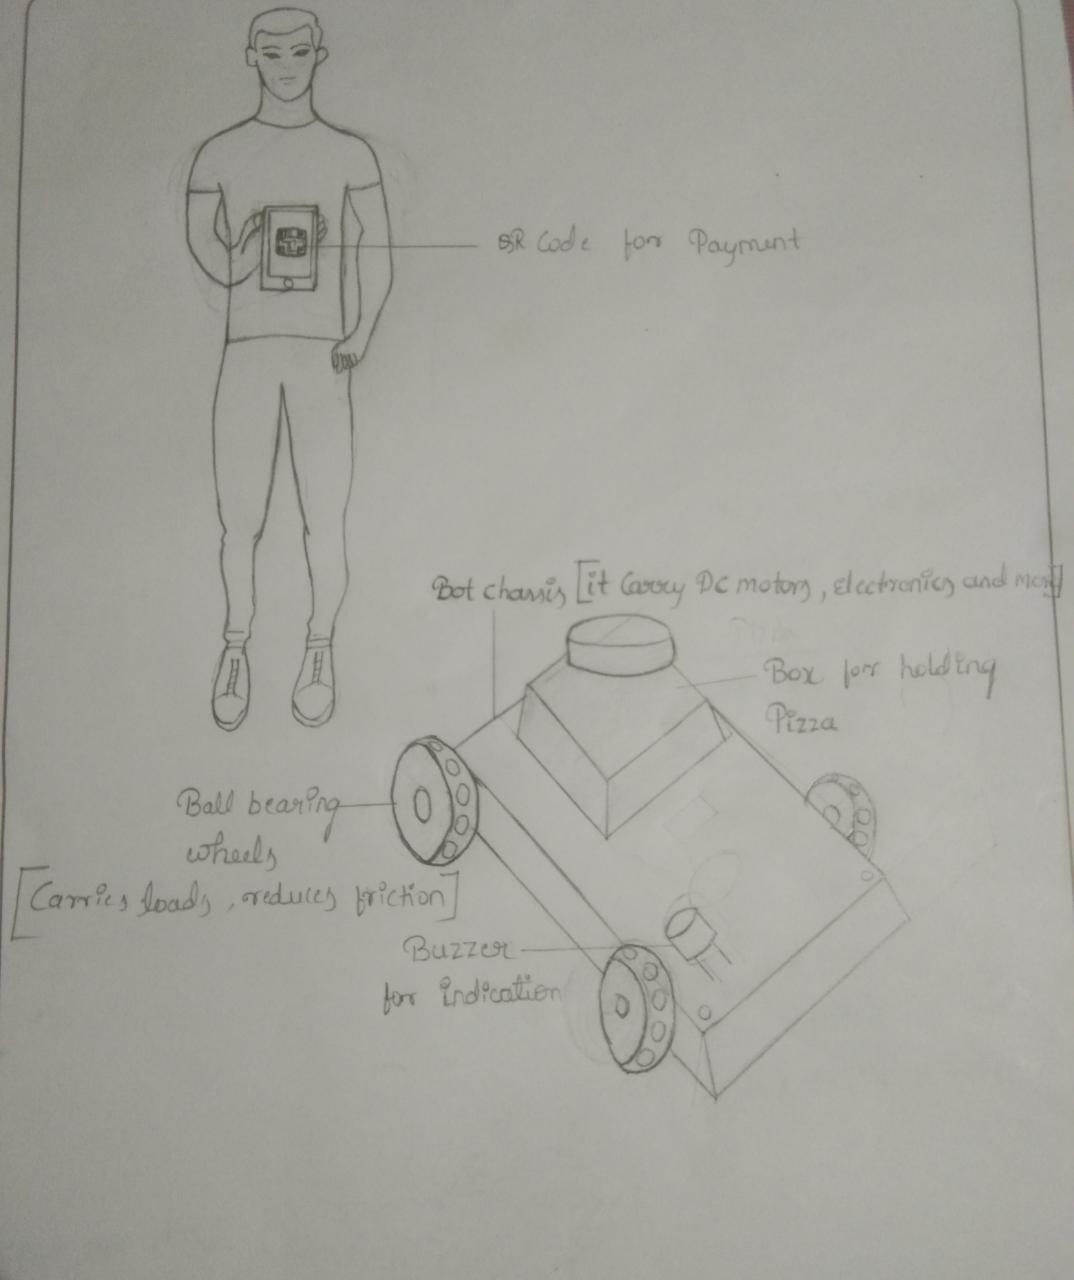 QR Code for Payment
Bot chassis [it Carry DC motors, electronics and more]
Box for holding
Pizza
Ball bearing
wheels
[Carries loads, reduces friction]
Buzzer
for indication